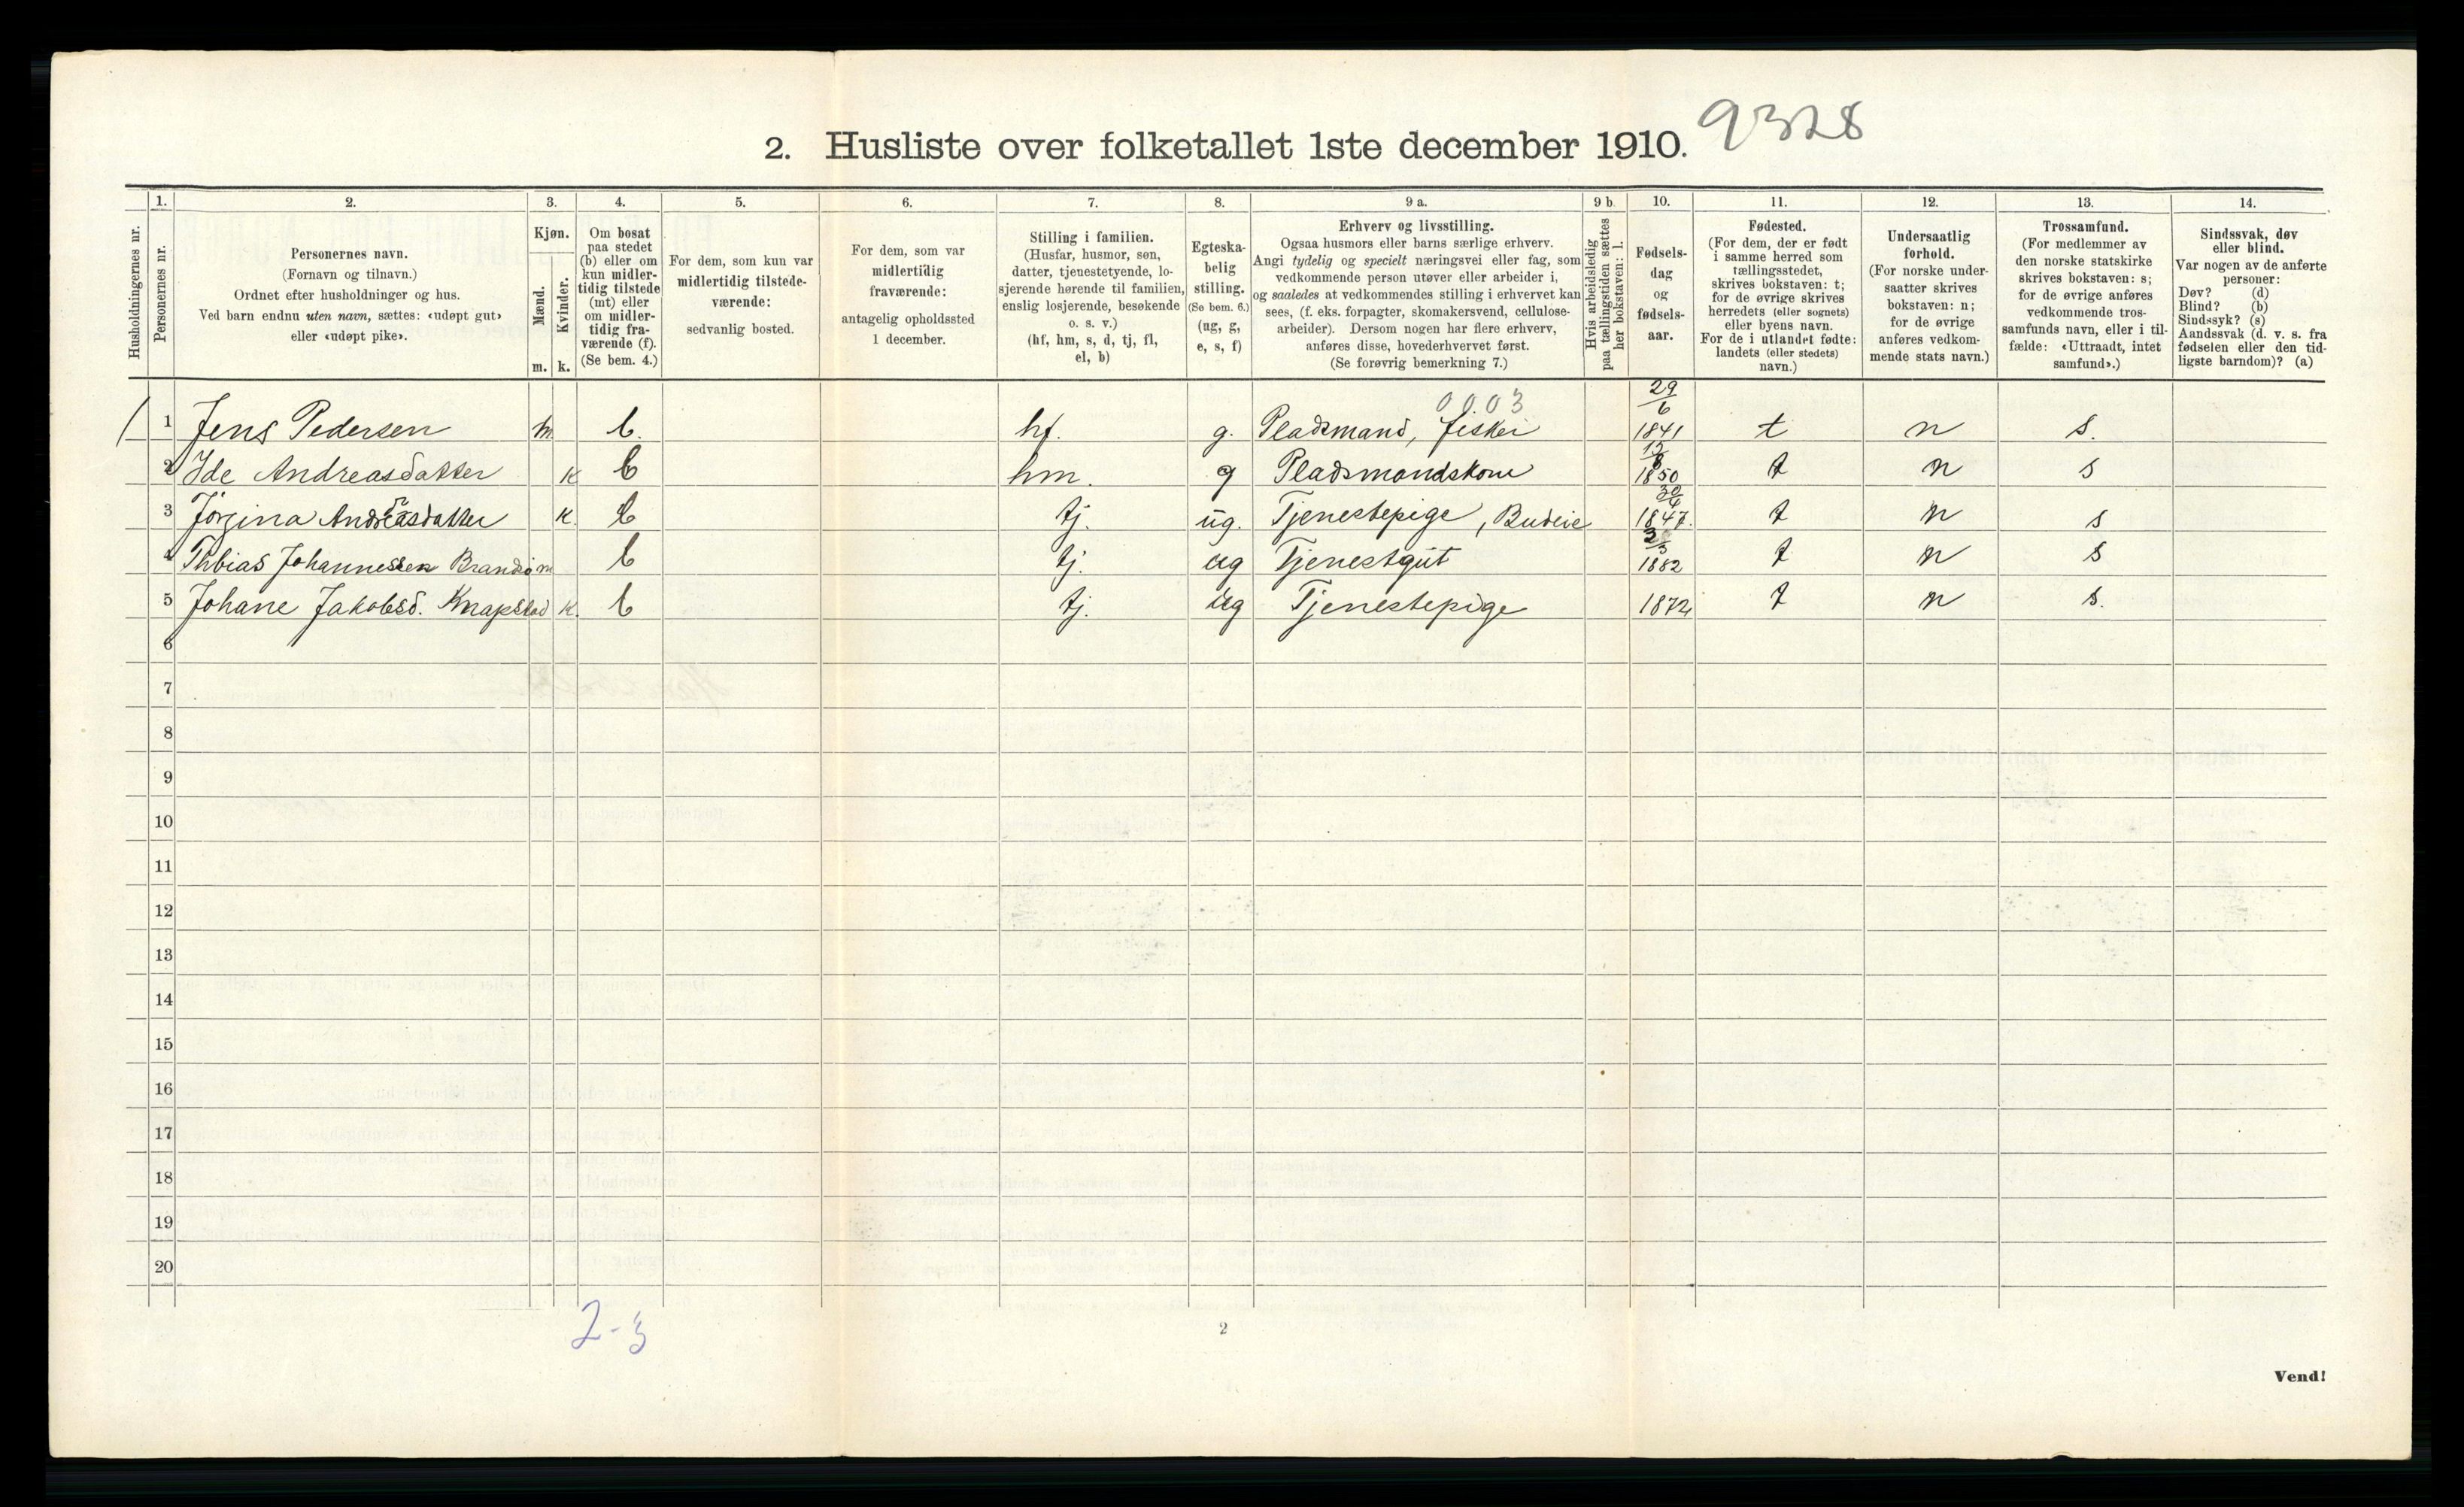 2. Husliste over folketallet 1ste december 1910. 9328
1. 2. 3. 4. 5. 6. 7. 8. 9 a. 9 b. 10. 11. 12. 13. 14.
Husholdningernes nr.
Personernes nr.
Personernes navn.
(Fornavn og tilnavn.)
Ordnet efter husholdninger og hus.
Ved barn endnu uten navn, sættes: «udøpt gut»
eller «udøpt pike».
Kjøn.
Mænd.
Kvinder.
m. k.
Om bosat
paa stedet
(b) eller om
kun midler-
tidig tilstede
(mt) eller
om midler-
tidig fra-
værende (f).
(Se bem. 4.)
For dem, som kun var
midlertidig tilstede-
værende:
sedvanlig bosted.
For dem, som var
midlertidig
fraværende:
antagelig opholdssted
1 december.
Stilling i familien.
(Husfar, husmor, søn,
datter, tjenestetyende, lo-
sjerende hørende til familien,
enslig losjerende, besøkende
o. s. v.)
(hf, hm, s, d, tj, fl,
el, b)
Egteska-
belig
stilling.
(Se bem. 6.)
(ug, g,
e, s, f)
Erhverv og livsstilling.
Ogsaa husmors eller barns særlige erhverv.
Angi tydelig og specielt næringsvei eller fag, som
vedkommende person utøver eller arbeider i,
og saaledes at vedkommendes stilling i erhvervet kan
sees, (f. eks. forpagter, skomakersvend, cellulose-
arbeider). Dersom nogen har flere erhverv,
anføres disse, hovederhvervet først.
(Se forøvrig bemerkning 7.)
Hvis arbeidsledig
paa tællingstiden sættes
her bokstaven: l.
Fødsels-
dag
og
fødsels-
aar.
Fødested.
(For dem, der er født
i samme herred som
tællingsstedet,
skrives bokstaven: t;
for de øvrige skrives
herredets (eller sognets)
eller byens navn.
For de i utlandet fødte:
landets (eller stedets)
navn.)
Undersaatlig
forhold.
(For norske under-
saatter skrives
bokstaven: n;
for de øvrige
anføres vedkom-
mende stats navn.)
Trossamfund.
(For medlemmer av
den norske statskirke
skrives bokstaven: s;
for de øvrige anføres
vedkommende tros-
samfunds navn, eller i til-
fælde: «Uttraadt, intet
samfund».)
Sindssvak, døv
eller blind.
Var nogen av de anførte
personer:
Døv? (d)
Blind? (b)
Sindssyk? (s)
Aandssvak (d. v. s. fra
fødselen eller den tid-
ligste barndom)? (a)
0 0 0 3 29/6
1 Jens Pedersen m b. hf. g. Pladsmand, fisker 1841 t n s.
2 Ide Andreasdatter k b hm. g Pladsmandskone 1850 t n s
3 Jörgina Andreasdatter k. b tj. ug. Tjenestepige, Budeie 30/6 1847. t n s
4 Thbias Johannessen m b tj. ug Tjenestgut 1882 t n s
5 Johane Jakobsd. Knapstad k. b tj. ug Tjenestepige 1872 t n s.
6
7
8
9
10
11
12
13
14
15
16
17
18
19
20
2-3
2
Vend!